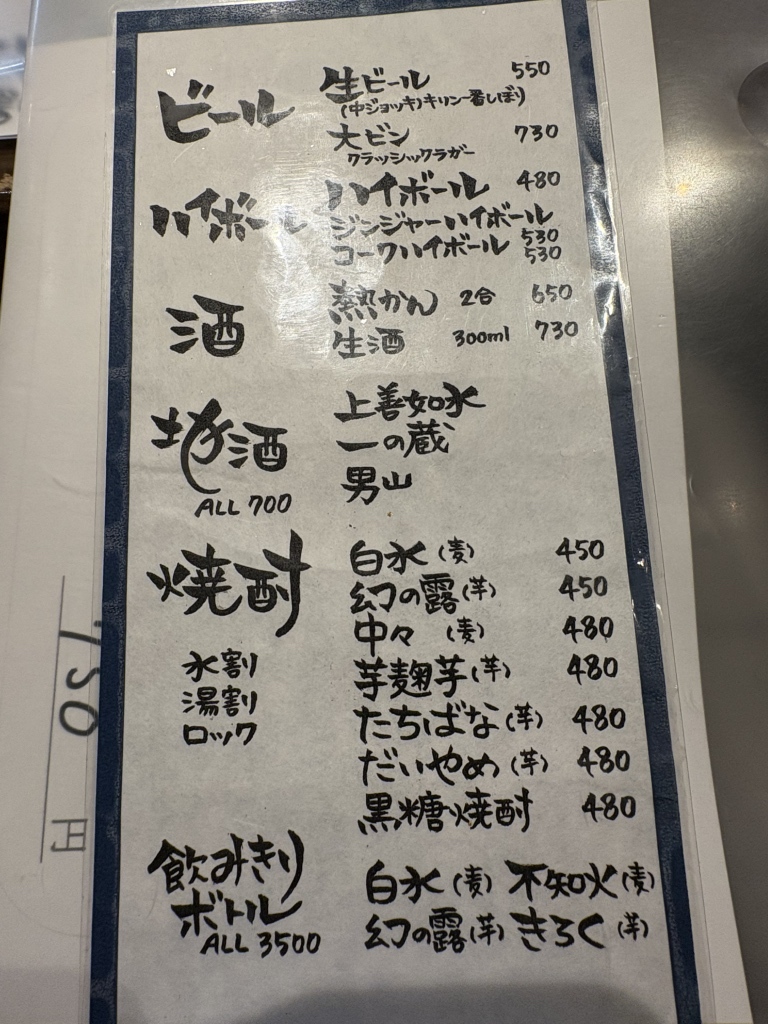 ビール
生ビール 550
(中ジョッキ)キリン一番しぼり
大ビン 730
クラッシックラガー
ハイボール
ハイボール 480
ジンジャーハイボール 530
コークハイボール 530
酒
熱かん 2合 650
生酒 300ml 730
地酒
ALL 700
上善如水
一の蔵
男山
焼酎
水割
湯割
ロック
白水(麦) 450
幻の露(芋) 450
中々(麦) 480
芋麹芋(芋) 480
たちばな(芋) 480
だいやめ(芋) 480
黒糖焼酎 480
飲みきり
ボトル
ALL 3500
白水(麦) 不知火(麦)
幻の露(芋) きろく(芋)
750
円